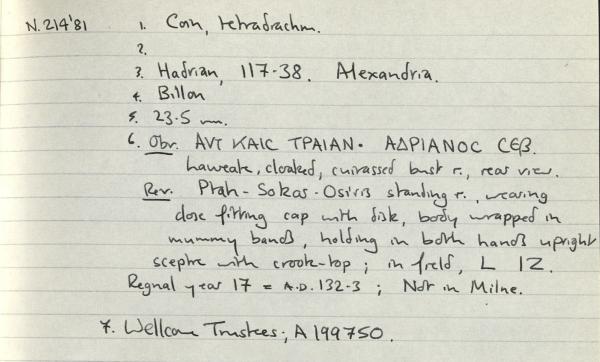 N.214'81 1. Coin, tetradrachm.
2.
3. Hadrian, 117-38. Alexandria.
4. Billon
5. 23.5 mm.
6. Obv. ΑΥΤ ΚΑΙC ΤΡΑΙΑΝ· ΑΔΡΙΑΝΟC CЄΒ.
laureate, cloaked, cuirassed bust r., rear view.
Rev. Ptah-Sokar-Osiris standing r., wearing
close fitting cap with disk, body wrapped in
mummy bands, holding in both hands upright
sceptre with crook-top; in field, L IZ.
Regnal year 17 = A.D. 132-3; Not in Milne.
7. Wellcome Trustees; A 199750.